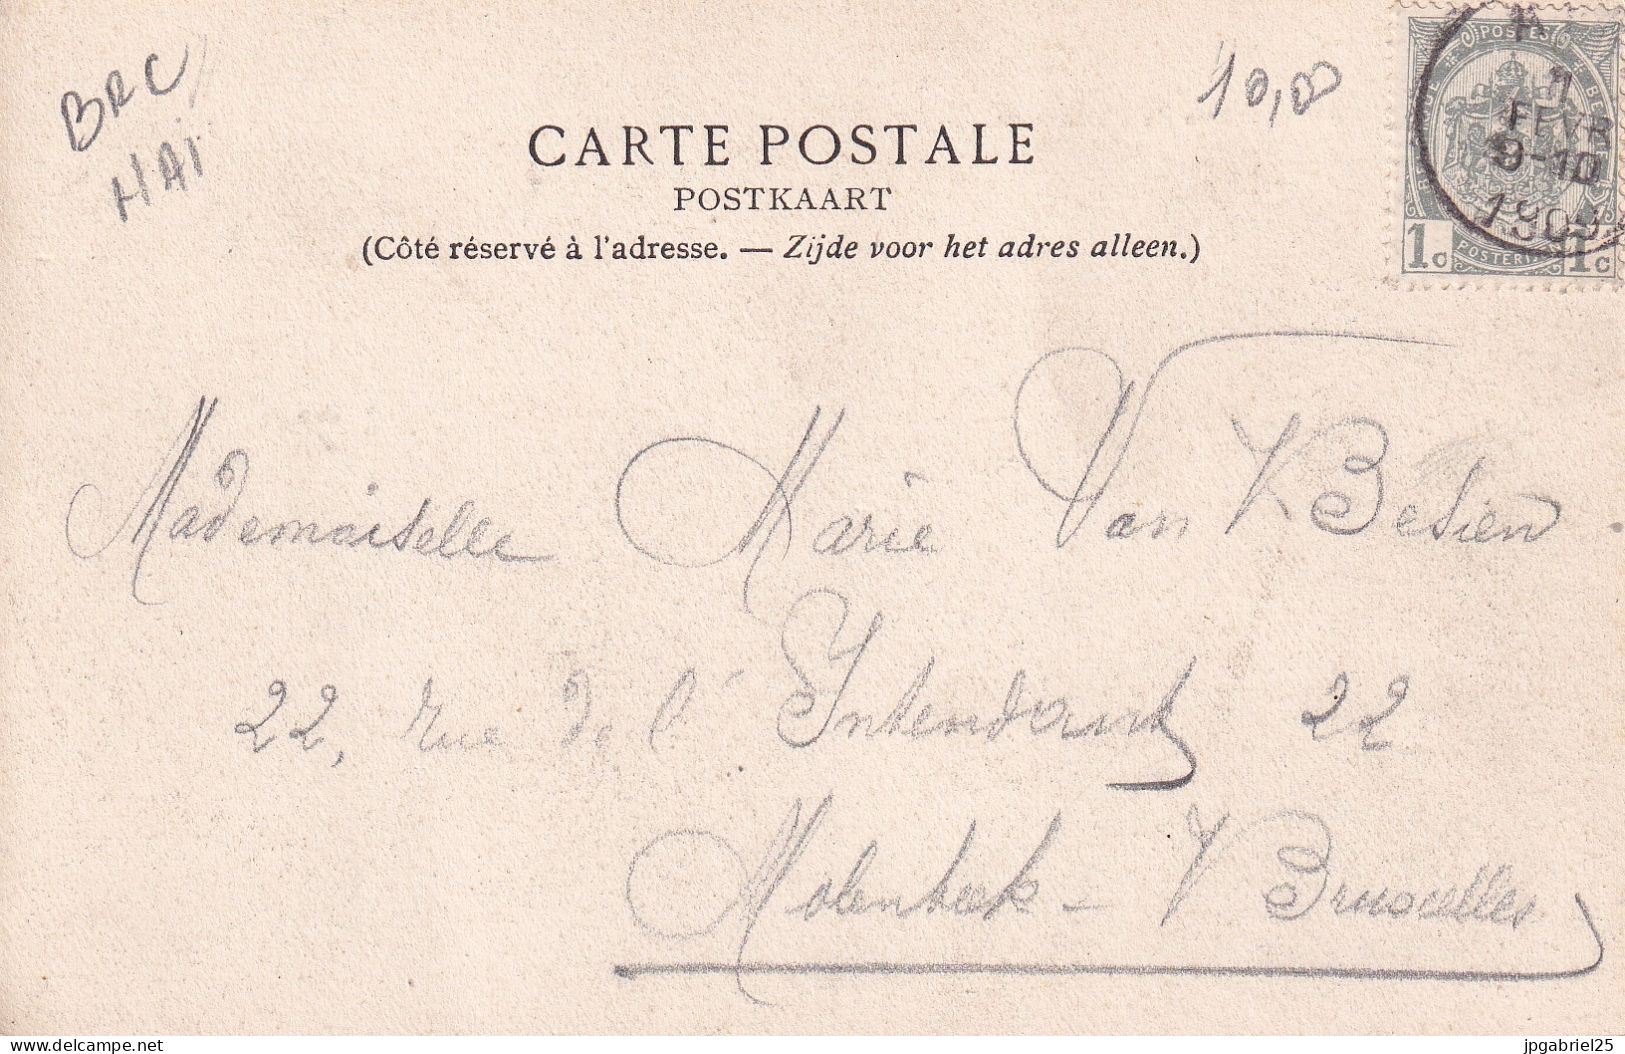 BRC
HAI
10,00
CARTE POSTALE
POSTKAART
(Côté réservé à l'adresse. — Zijde voor het adres alleen.)
POSTES
FEVR
9-10
1c POSTERIJEN 1c
Mademoiselle Marie Van Besien
22, rue de l'Intendant 22
Molenbeek - Bruxelles
delcampe.net
jpgabriel25